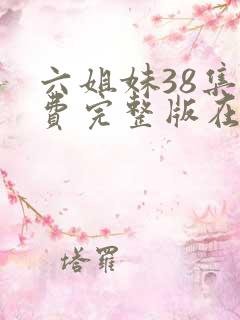 六姐妹38集
费完整版在
塔罗